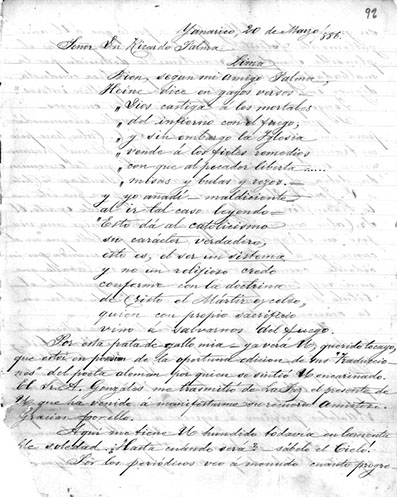 92
Yanarico, 20 de Marzo/886.
Señor Dn Ricardo Palma
Lima
Bien, segun mi amigo Palma,
Heine dice en gayos versos—
"Dios castiga á los mortales
"del infierno con el fuego;
"y sin embargo la Iglesia
"vende á los fieles remedios
"con que al pecador liberta.....
"misas y bulas y rezos.—
y yo añadí—maldiciente
al ir tal caso leyendo—
"Esto dá al catolicismo
su carácter verdadero,
esto es, el ser un sistema
y no un relijioso credo
conforme con la doctrina
de Cristo el Mártir excelso,
quien con propio sacrificio
vino á salvarnos del fuego.
Por esta pata de gallo mia—ya verá U, querido tocayo,
que estoi en posesion de la oportuna edicion de sus "Traduccio-
nes" del poeta aleman por quien se sintió U encariñado.
El Sr A. Gonzáles me trasmitió de La Paz el presente de
U que ha venido á manifestarme su remoro amistoso.
Gracias por ello.
Aqui me tiene U hundido todavia en lamenta
ble soledad. ¿Hasta cuándo será? sábelo el Cielo.
Por los periódicos veo a menudo cuánto progre-